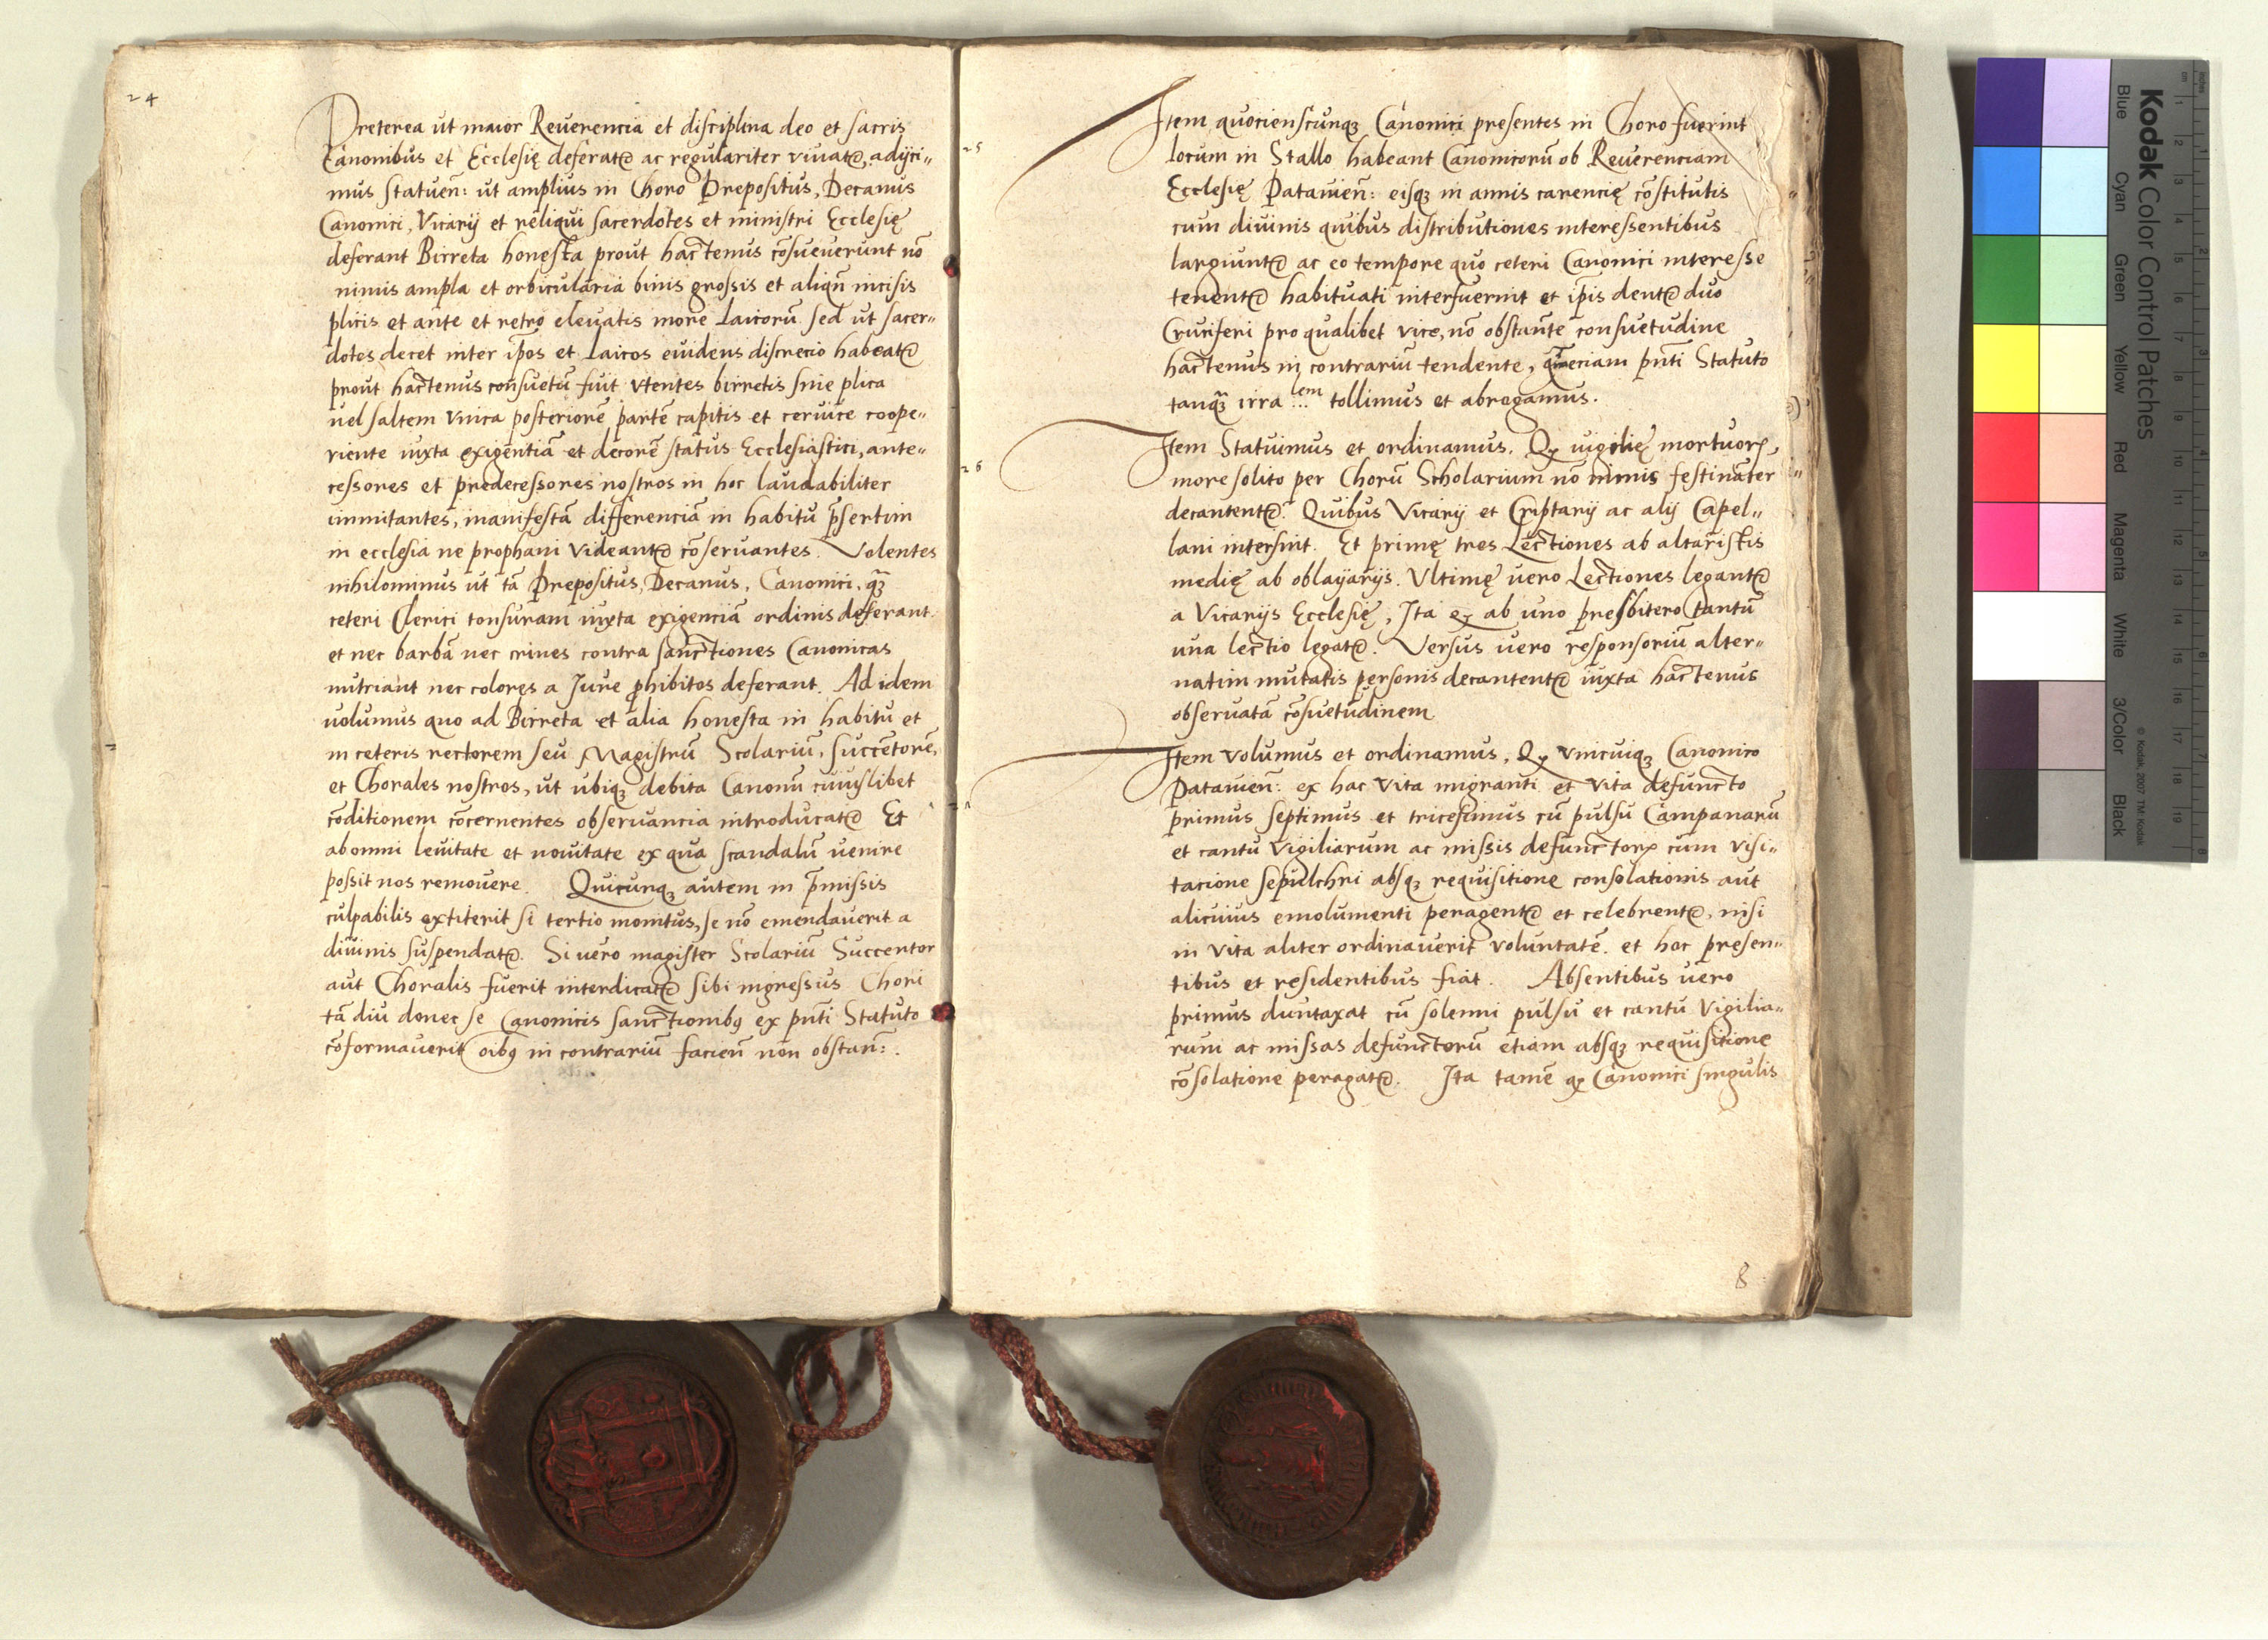 24
Preterea ut maior Reuerencia et disciplina deo et sacris
Canonibus et Ecclesię deferatr̄ ac regulariter viuatr̄, adijci„
mus statuen̄: ut amplius in Choro Prepositus, Decanus
Canonici, Vicarij et reliqui sacerdotes et ministri Ecclesię
deferant Birreta honesta prout hactenus cōsueuerunt nō
nimis ampla et orbicularia binis grossis et aliqn̄ incisis
plicis et ante et retro eleuatis more Laicorū sed ut sacer„
dotes decet inter ip̄os et Laicos euidens discrecio habeatr̄
prout hactenus consuetū fuit vtentes birretis sine plica
uel saltem vnica posteriorē partē capitis et ceruice coope„
riente iuxta exigentiā et decorē status Ecclesiastici, ante„
cessores et predecessores nostros in hoc laudabiliter
immitantes, manifestā differenciā in habitu p̄sertim
in ecclesia ne prophani videantr̄ cōseruantes. Volentes
nihilominus ut tā Prepositus, Decanus, Canonici, qꝫ̄
ceteri Clerici tonsuram iuxta exigenciā ordinis deferant.
et nec barbā nec crines contra sanctiones Canonicas
nutriant nec colores a Jure ꝓhibitos deferant. Ad idem
uolumus quo ad Birreta et alia honesta in habitu et
in ceteris rectorem seu Magistrū Scolariū, Succētorē,
et Chorales nostros, ut ubiqꝫ debita Canonū cuiuslibet
cōditionem cōcernentes obseruancia introducatr̄ Et
ab omni leuitate et nouitate ex qua scandalū uenire
possit nos remouere. Quicunqꝫ autem in p̄missis
culpabilis extiterit si tertio monitus, se nō emendauerit a
diuinis suspendatr̄. Si uero magister Scolariū Succentor
aut Choralis fuerit interdicatr̄ sibi ingressus Chori
tā diu donec se Canonicis sanctionibꝫ ex pn̄ti Statuto
cōformauerit oībꝫ in contrariū facien̄ non obstan̄:.
25
Item quocienscunqꝫ Canonici presentes in Choro fuerint
locum in Stallo habeant Canonicorū ob Reuerenciam
Ecclesię Patauien̄: eisqꝫ in annis carencię cōstitutis
cum diuinis quibus distributiones interessentibus
largiuntr̄ ac eo tempore quo ceteri Canonici interesse
tenentr̄ habituati interfuerint et ip̄is dentr̄ duo
Cruciferi pro qualibet vice, nō obstante consuetudine
hactenus in contrariū tendente, eciam pn̄ti Statuto
tanqꝫ̄ irra...em tollimus et abrogamus.
26
Item Statuimus et ordinamus. Qꝫ uigilię mortuorꝝ
more solito per Chorū Scholarium nō nimis festinanter
decantentr̄. Quibus Vicarij et Criptarij ac alij Capel„
lani intersint. Et primę tres Lectiones ab altaristis
medię ab oblayarijs. Ultimę uero Lectiones legantr̄
a Vicarijs Ecclesię, Ita qꝫ ab uno presbitero tantū
una lectio legatr̄. Versus uero responsoriū alter„
natim mutatis personis decantentr̄ iuxta hactenus
obseruatā cōsuetudinem
Item volumus et ordinamus, Qꝫ vnicuiqꝫ Canonico
Patauien̄: ex hac vita migranti et vita defuncto
primus septimus et tricesimus cū pulsu Campanarū
et cantu Vigiliarum ac missis defunctorꝝ cum visi„
tacione sepulchri absqꝫ requisitione consolationis aut
alicuius emolumenti peragentr̄ et celebrentr̄, nisi
in vita aliter ordinauerit voluntatē. et hoc presen„
tibus et residentibus fiat. Absentibus uero
primus duntaxat cū solenni pulsu et cantu Vigilia„
rum ac missas defunctorū etiam absqꝫ requisitione
cōsolatione peragatr̄. Ita tamē qꝫ Canonici singulis
8
Kodak Color Control Patches
© Kodak, 2007 TM: Kodak
Blue Cyan Green Yellow Red Magenta White 3/Color Black
inches
cm 1 2 3 4 5 6 7 8 9 10 11 12 13 14 15 16 17 18 19
1 2 3 4 5 6 7 8